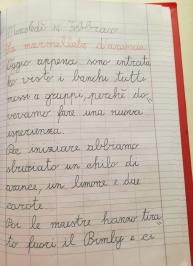 Mercoledì 14 Febbraio
La marmellata d'arancia
Oggi appena sono entrata
ho visto i banchi tutti
messi a gruppi, perchè do-
vevamo fare una nuova
esperienza.
Per iniziare abbiamo
sbucciato un chilo di
arance, un limone e due
carote.
Poi le maestre hanno tira
to fuori il Bimby e ci